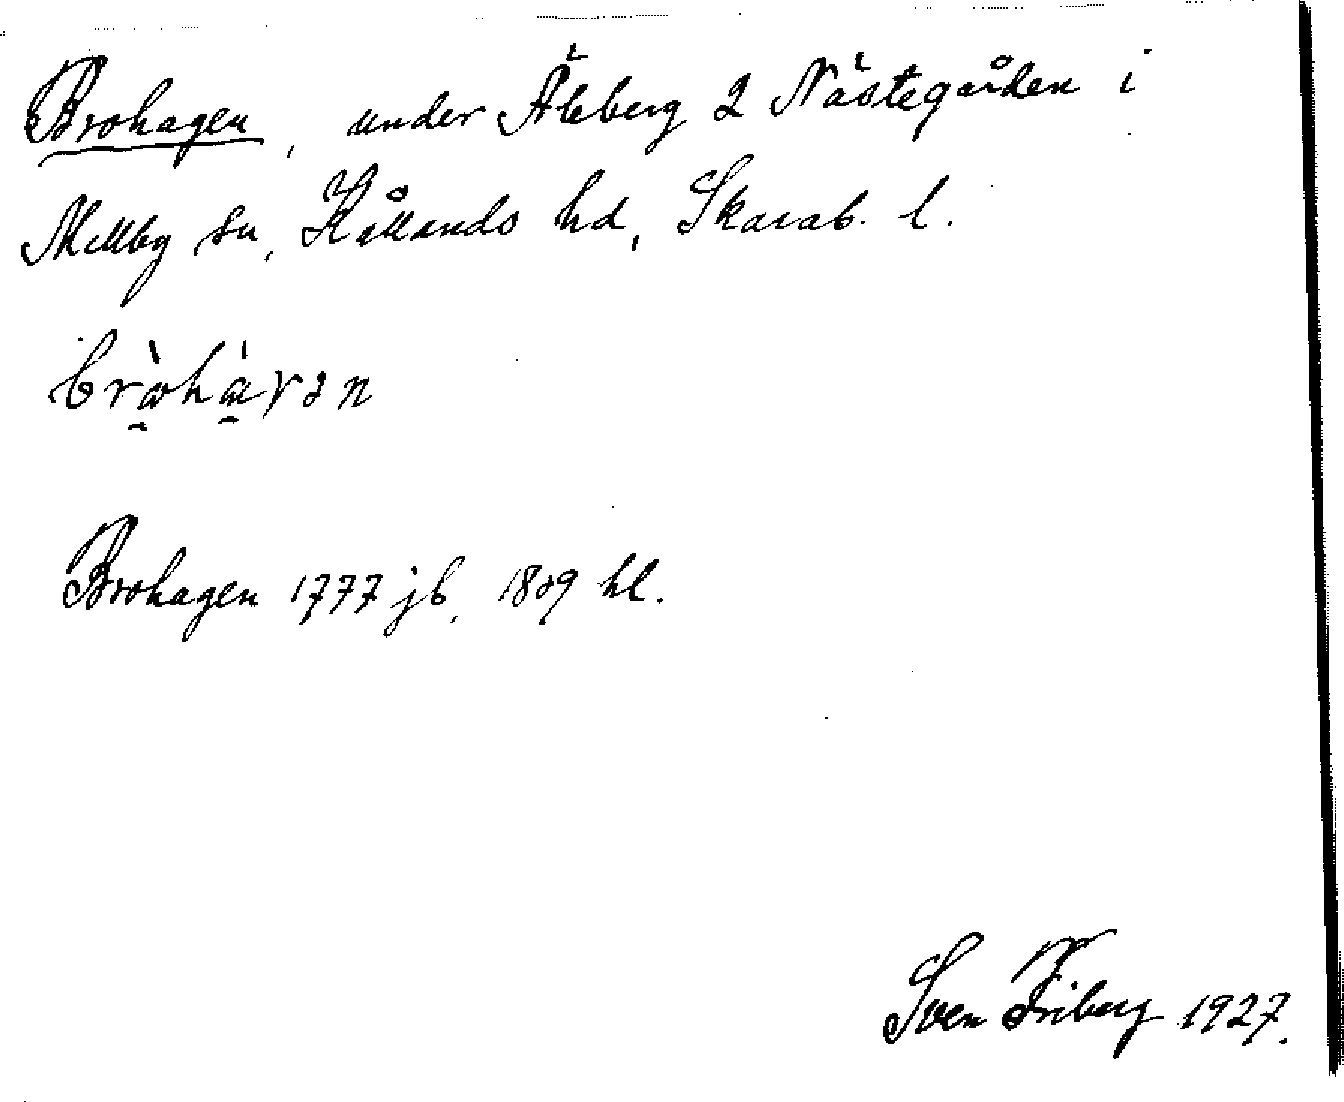 Brohagen, under Äleberg 2 Nästegården i
Mellby sn, Kållands hd, Skarab. l.
Brohagen 1777 jb, 1809 hl.
Sven Friberg 1927.